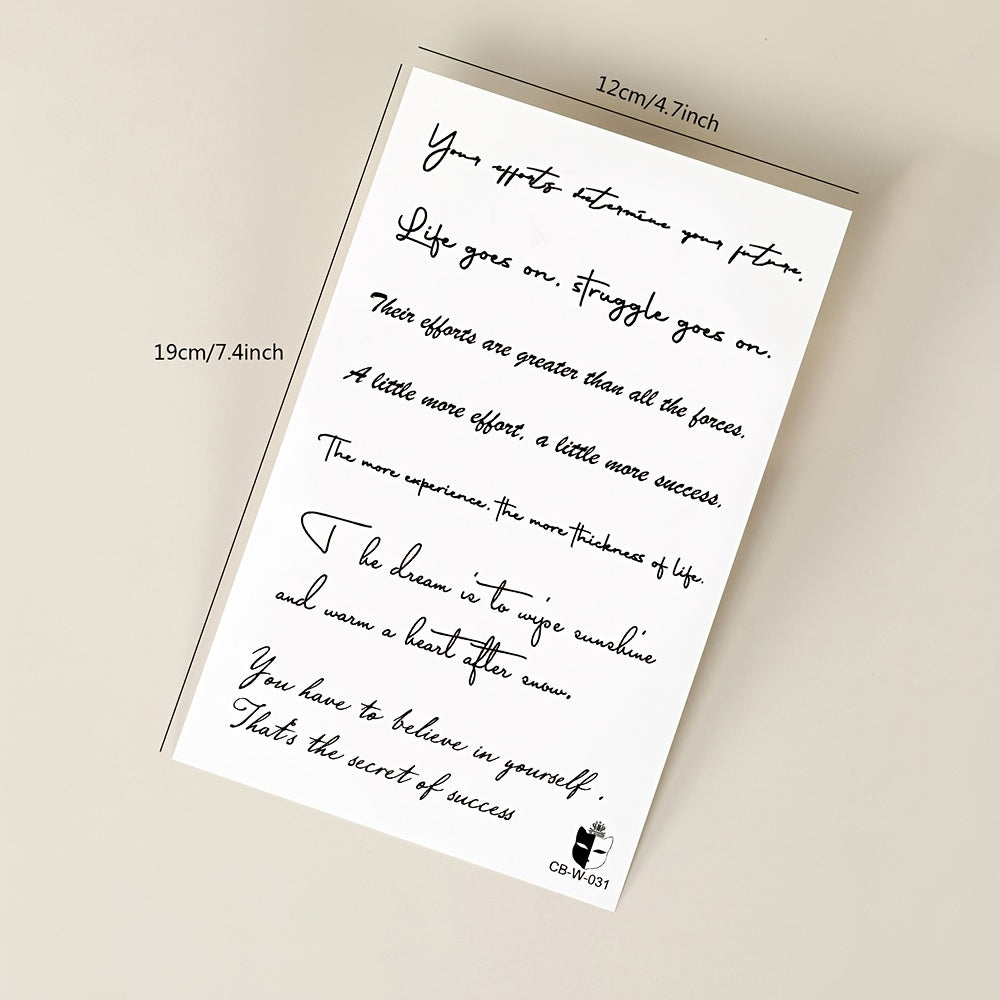 12cm/4.7inch
19cm/7.4inch
Your efforts determine your future.
Life goes on. struggle goes on.
Their efforts are greater than all the forces.
A little more effort, a little more success.
The more experience. the more thickness of life.
The dream is to wipe sunshine
and warm a heart after snow.
You have to believe in yourself .
That's the secret of success
CB-W-031